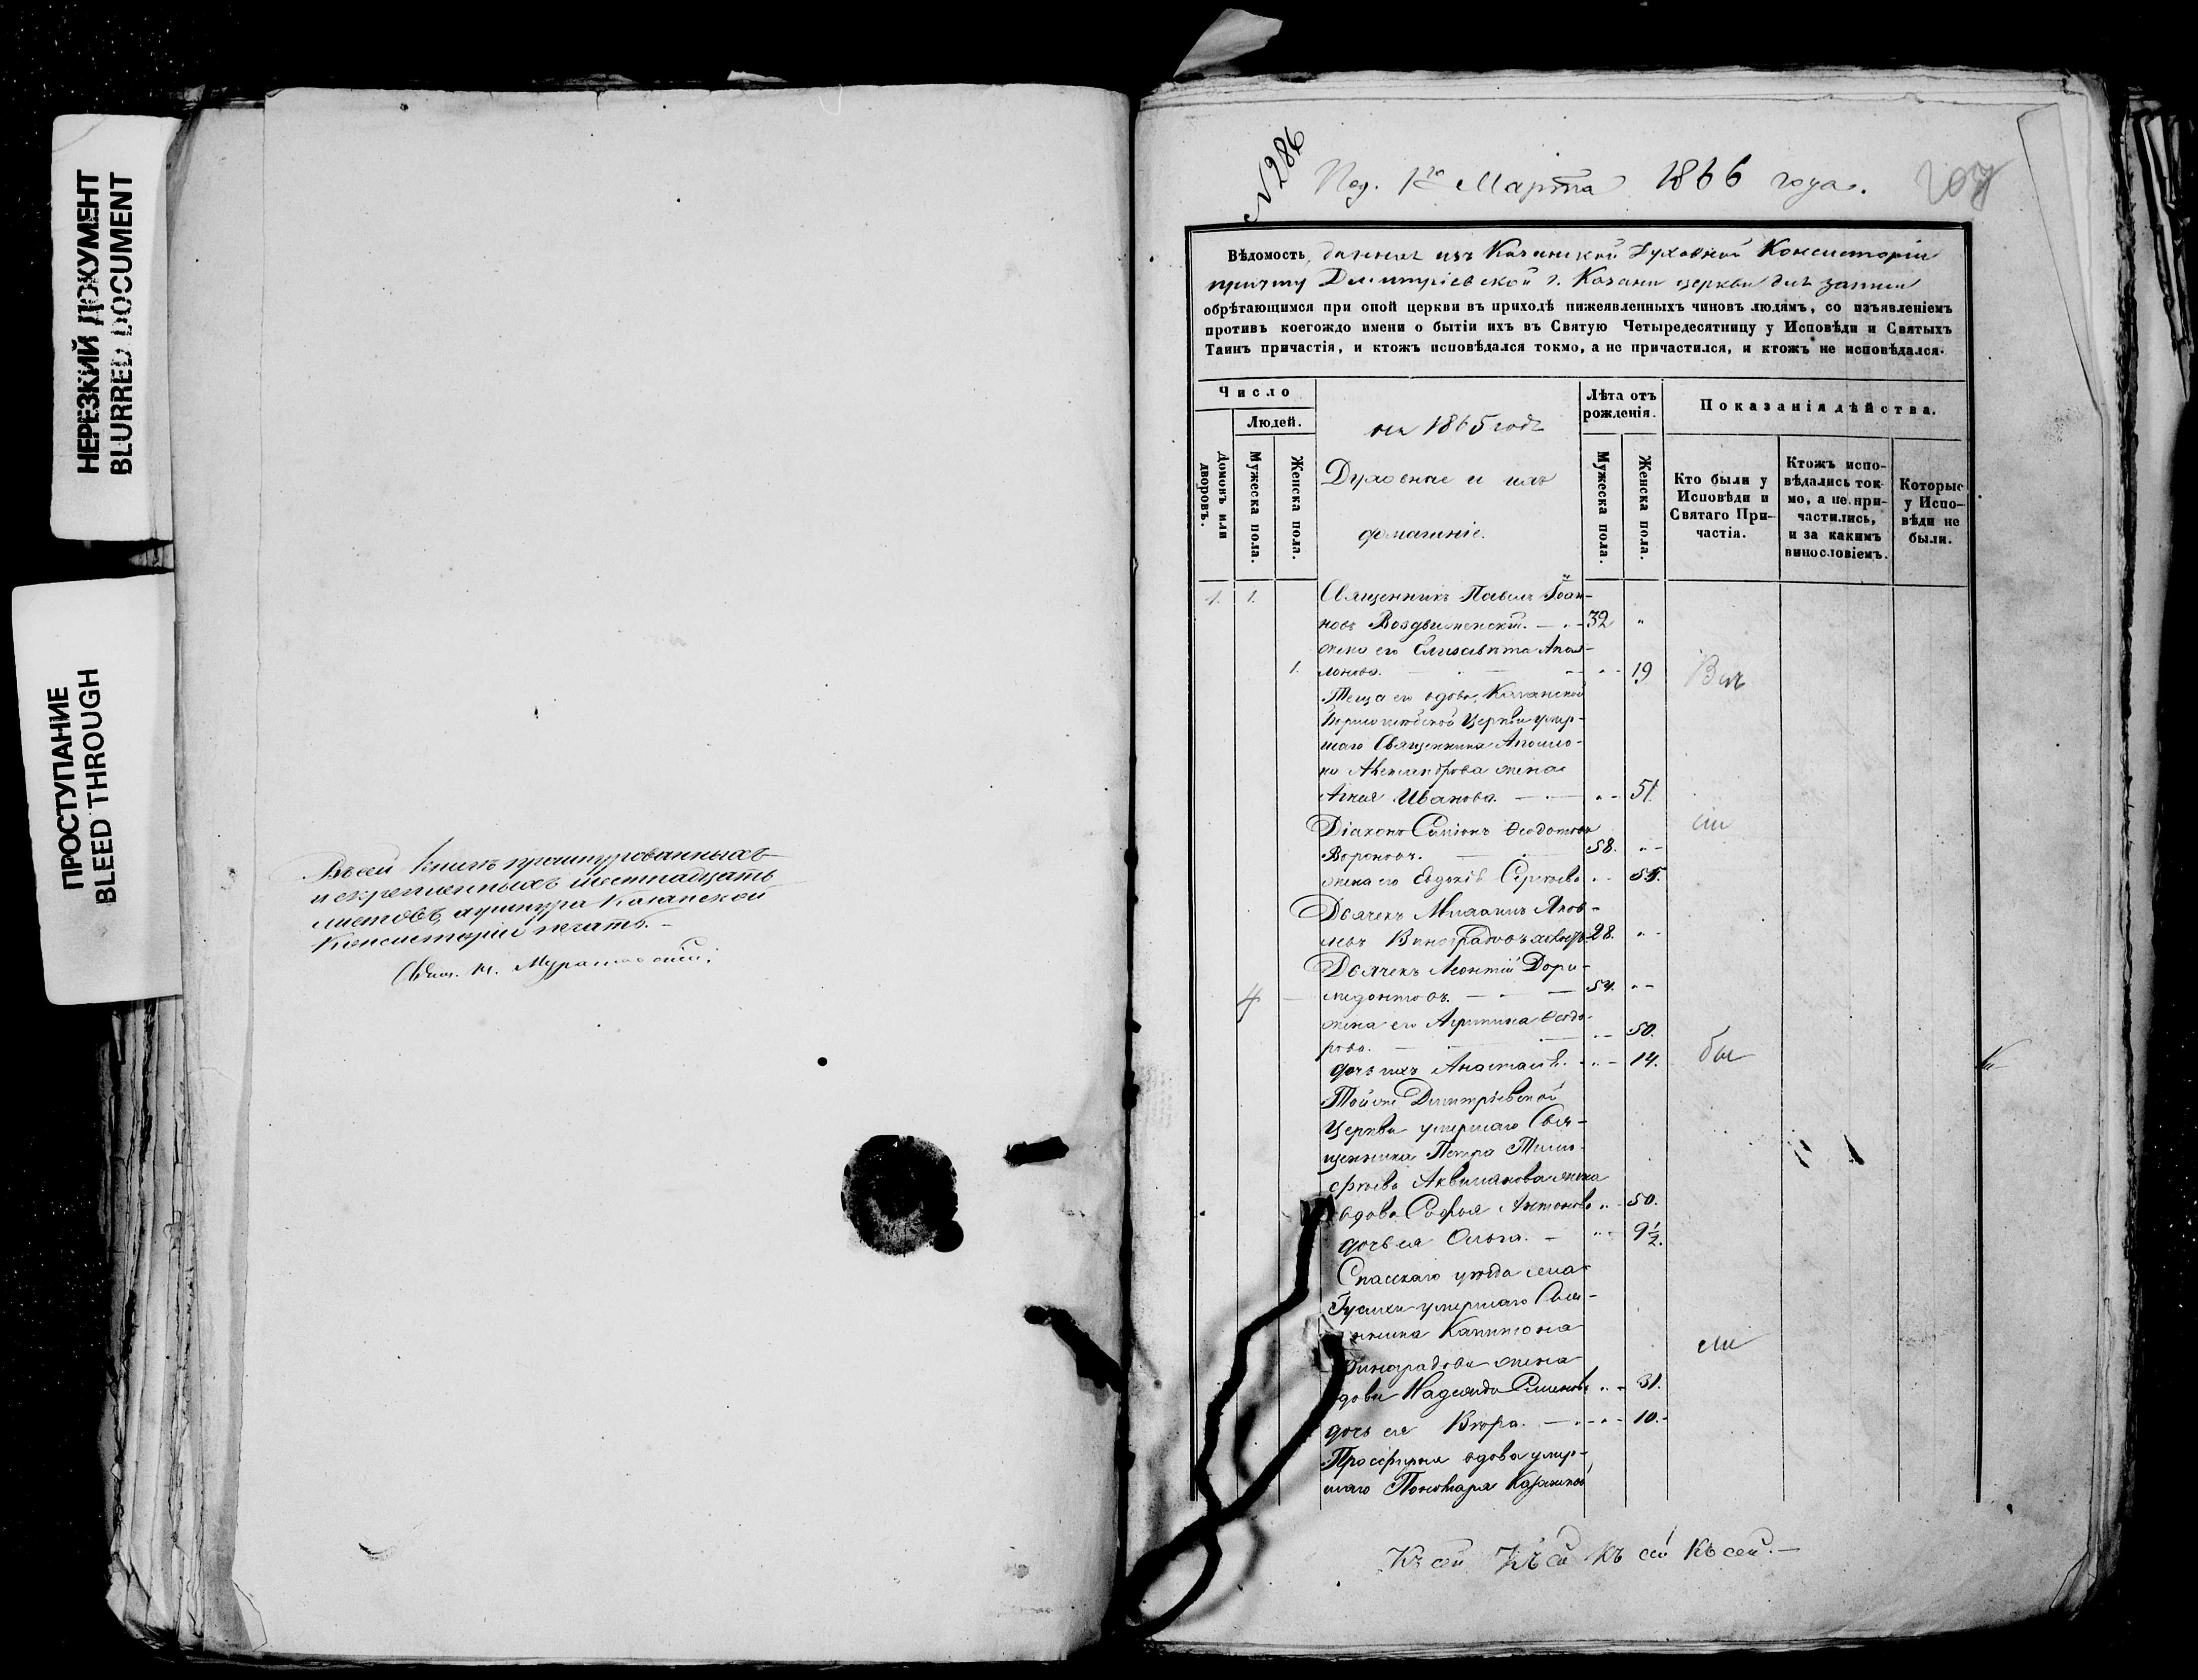 НЕРЕЗКИЙ ДОКУМЕНТ
BLURRED DOCUMENT
ПРОСТУПАНИЕ
BLEED THROUGH
Въ сей книгѣ прошнурованныхъ
и скрѣпленныхъ шестнадцать
листовъ, а у шнура Казанской
Консисторіи печать.
Свящ. М.
№ 286
Под. 1го Марта 1866 года.
Вѣдомость, данная изъ Казанской Духовной Консисторіи
причту Димитріевской г. Казани церкви для записи
обрѣтающимся при оной церкви въ приходѣ нижеявленныхъ чиновъ людямъ, со изъявленіемъ
противъ коегождо имени о бытіи ихъ въ Святую Четыредесятницу у Исповѣди и Святыхъ
Таинъ причастія, и ктожъ исповѣдался токмо, а не причастился, и ктожъ не исповѣдался.
Число
Людей.
Домовъ или дворовъ.
Мужеска пола.
Женска пола.
на 1865 годъ
Духовные и ихъ
домашніе.
Лѣта отъ рожденія.
Мужеска пола.
Женска пола.
Показанія дѣйства.
Кто были у Исповѣди и Святаго Причастія.
Ктожъ исповѣдались токмо, а не причастились, и за какимъ винословіемъ.
Которые у Исповѣди не были.
1. 1. Священникъ Павелъ Іоан-
новъ Воздвиженскій. 32 "
жена его Елисавета Апол-
1. лонова. 19
Теща его вдова, Казанской
церкви умер-
шаго Священника Аполло-
на Александрова жена
Иванова. 51.
Діаконъ Симеонъ Ѳеодотовъ
Вороновъ. 58.
жена его Евдокія Сергѣева 55.
Дьячекъ Михаилъ Яков-
левъ Виноградовъ 28.
Дьячекъ Леонтій Дори-
4 медонтовъ. 54.
жена его Агрипина Ѳеодо-
рова. 50.
дочь ихъ Анастасія. 14. бы
Тойже Димитріевской
Церкви умершаго Свя-
щенника Петра Тимо-
ѳеева Аквилянова жена
вдова Софья Антонова 50.
дочь ея Ольга. 9½.
Спасскаго уѣзда села
умершаго Свя-
щенника Капитона
Виноградова жена
вдова Надежда Семенова 31.
дочь ея Вѣра. 10.
Просфирня вдова умер-
шаго Пономаря
Къ сей Къ сей Къ сей Къ сей.